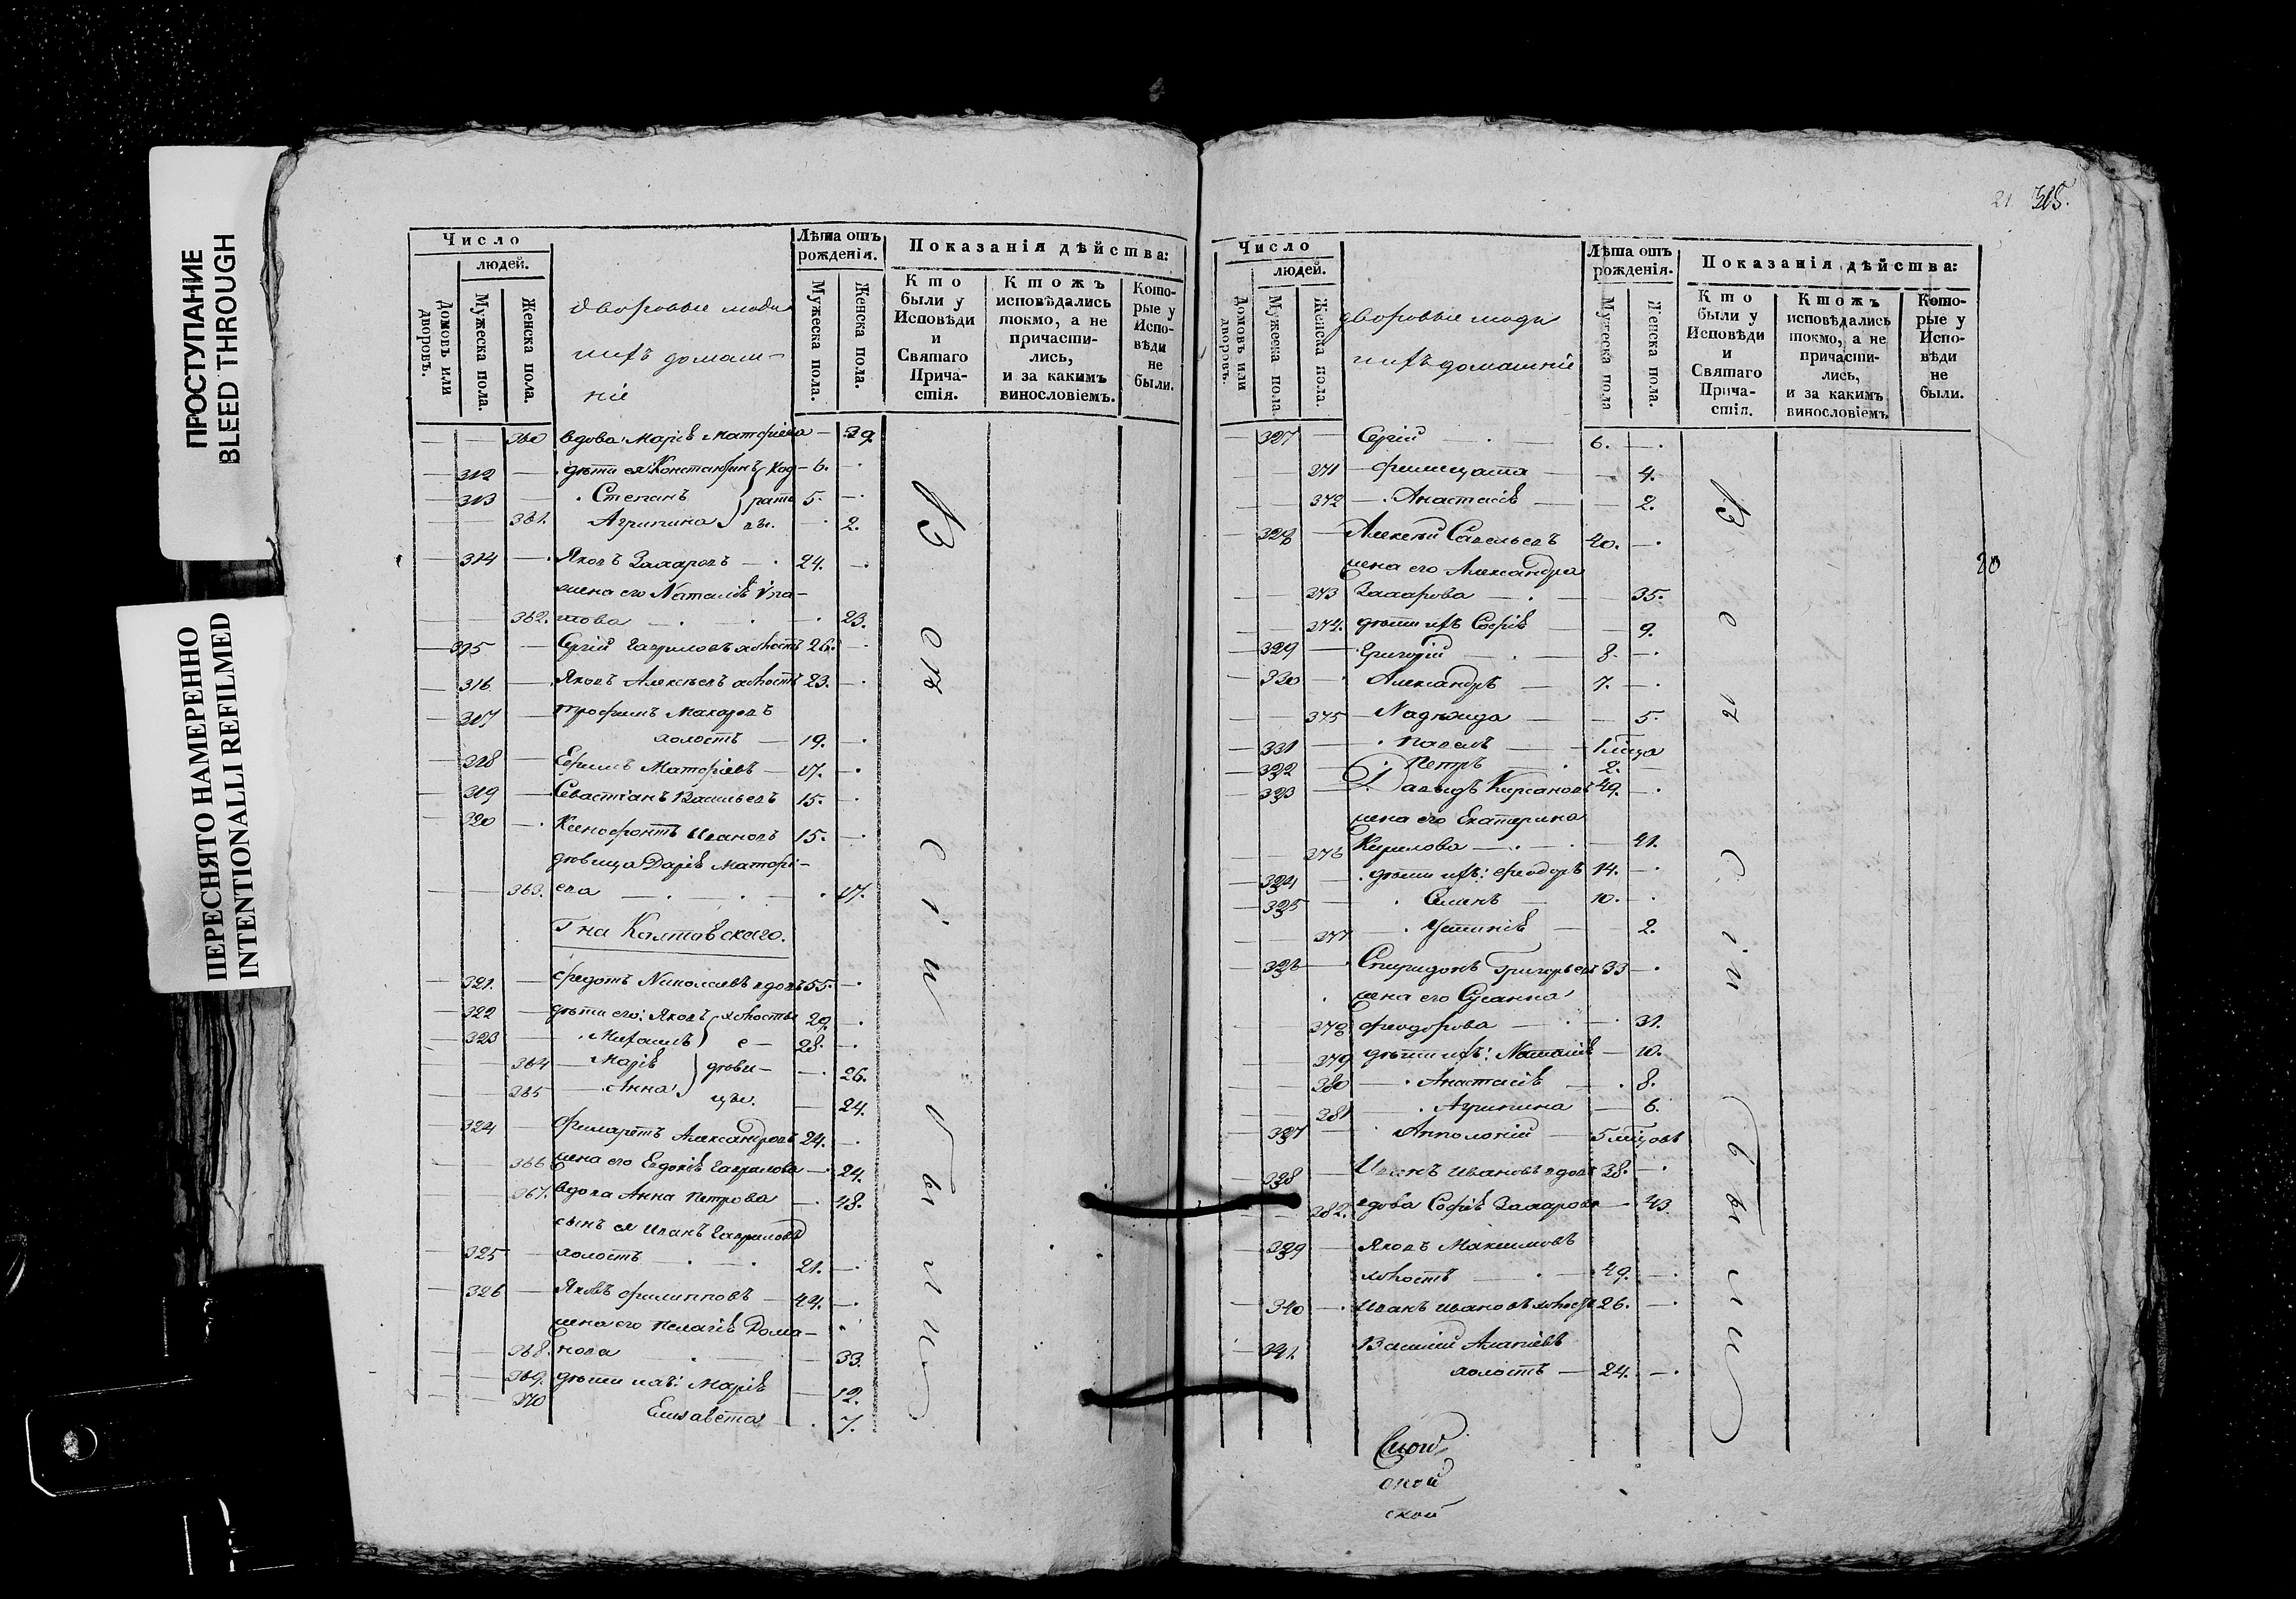 ПРОСТУПАНИЕ
BLEED THROUGH
ПЕРЕСНЯТО НАМЕРЕННО
INTENTIONALLI REFILMED
Число
людей.
Домовъ или дворовъ.
Мужеска пола.
Женска пола.
дворовые люди
ихъ домаш-
ніе
Лѣта отъ рожденія.
Мужеска пола.
Женска пола.
Показанія дѣйства:
Кто были у Исповѣди и Святаго Прича- стія.
Ктожъ исповѣдались токмо, а не причасти- лись, и за какимъ винословіемъ.
Кото- рые у Испо- вѣди не были.
360 вдова Марія Матфіева — 39
312 — дѣти ея: Константинъ 6. —
313 — Степанъ 5. —
361. Агрипина — 2.
314 — Яковъ Захаровъ — 24. —
жена его Наталія Ипа-
362. това — 23.
315 — Сергій Гавриловъ холостъ 26. —
316 — Яковъ Алексѣевъ холостъ 23. —
317 — Трофимъ Макаровъ
холостъ — 19. —
318 — Ефимъ Матфіевъ — 17. —
319 — Севастіанъ Васильевъ 15. —
320 — Ксенофонтъ Ивановъ 15. —
дѣвица Дарія Матфі-
363. ева — 17.
Г на Колтовскаго.
321. — Федотъ Николаевъ вдовъ 55. —
322 — дѣти его: Яковъ холосты 29. —
323 — Михаилъ е — 28. —
364 — Марія дѣви — 26.
365 — Анна цы. — 24.
324 — Филаретъ Александровъ 24. —
366 жена его Евдокія Гаврилова — 24.
367. вдова Анна Петрова — 48.
сынъ ея Иванъ Гавриловъ
325 — холостъ — 21. —
326 — Яковъ Филипповъ — 44. —
жена его Пелагія Рома-
368. нова — 33.
369. дѣти ихъ: Марія — 12.
370 Елисавета — 7.
В отъ сіи были
21 315.
Число
людей.
Домовъ или дворовъ.
Мужеска пола.
Женска пола.
дворовые люди
ихъ домашніе
Лѣта отъ рожденія.
Мужеска пола
Женска пола.
Показанія дѣйства:
Кто были у Исповѣди и Святаго Прича- стія.
Ктожъ исповѣдались токмо, а не причасти- лись, и за какимъ винословіемъ.
Кото- рые у Испо- вѣди не были.
327 — Сергій — 6. —
371 — Филицата — 4.
372 — Анастасія — 2.
328 — Алексѣй Савельевъ 40. —
жена его Александра
373 Захарова — 35.
374. дѣти ихъ Софія — 9.
329 — Григорій — 8. —
330 — Александръ — 7. —
375 — Надежда — 5.
331 — Павелъ — 1 мѣсца
332 — Петръ — 2. —
20
333 — Давыдъ Кирсановъ 49. —
жена его Екатерина
376 Кирилова — 41.
334 — дѣти ихъ: Феодоръ 14. —
335 — Симеонъ — 10. —
377 — Устинія — 2.
336 — Спиридонъ Григорьевъ 33 —
жена его Сусанна
378 Феодорова — 31.
379 дѣти ихъ: Наталія — 10.
380 — Анастасія — 8.
381 — Агрипина — 6.
337 — Апполоній — 5 мѣсцовъ
338 — Иванъ Ивановъ вдовъ 38. —
382. вдова Софія Захарова — 43
339 — Яковъ Максимовъ
холостъ — 49. —
340 — Иванъ Ивановъ холостъ 26. —
341. Василій
холостъ — 24. —
В отъ сіи были